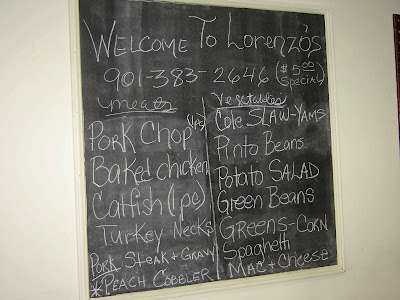 WELCOME TO LORENZO'S
901-383-2646 ($5.00 SPECIAL)
meats
PORK CHOP (1pc)
BAKED chicken
Catfish (1 pc)
TURKEY NECKS
PORK STEAK + GRAVY
*PEACH COBBLER
Vegetables
Cole SLAW-YAMS
Pinto Beans
Potato SALAD
Green Beans
GREENS-CORN
Spaghetti
MAC + Cheese